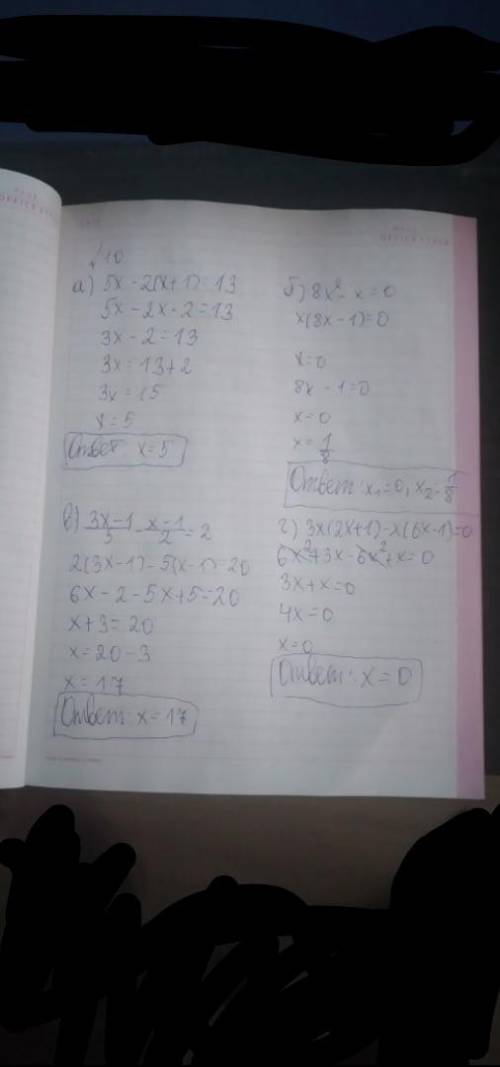 √10
а) 5x - 2(x+1) = 13
5x - 2x - 2 = 13
3x - 2 = 13
3x = 13+2
3x = 15
x = 5
Ответ: x = 5
б) 8x² - x = 0
x(8x - 1) = 0
x = 0
8x - 1 = 0
x = 0
x = 1/8
Ответ: x₁ = 0, x₂ = 1/8
в) 3x-1/5 - x-1/2 = 2
2(3x-1) - 5(x-1) = 20
6x - 2 - 5x + 5 = 20
x + 3 = 20
x = 20 - 3
x = 17
Ответ: x = 17
г) 3x(2x+1) - x(6x-1) = 0
6x² + 3x - 6x² + x = 0
3x + x = 0
4x = 0
x = 0
Ответ: x = 0